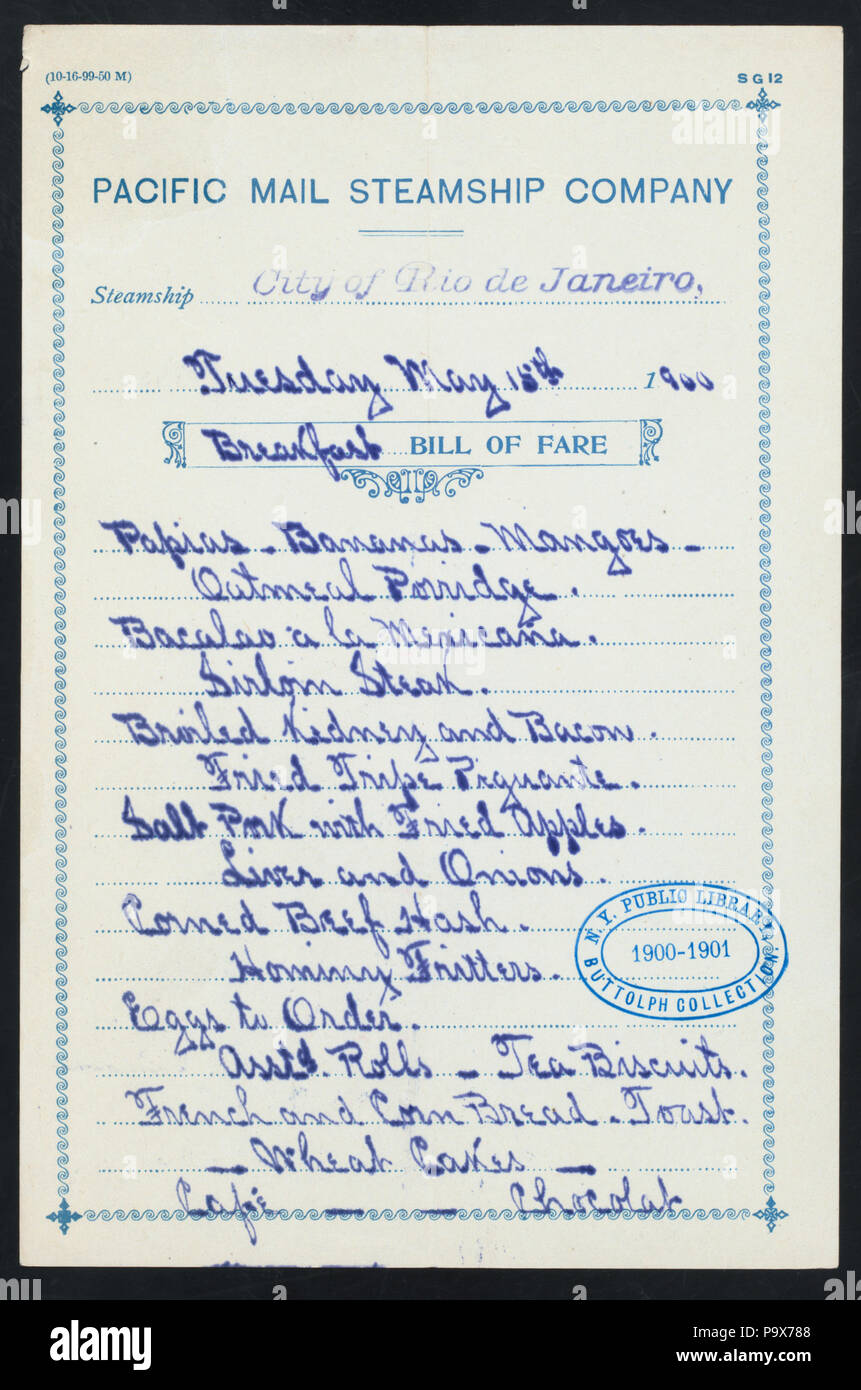 (10-16-99-50 M)
S G 12
PACIFIC MAIL STEAMSHIP COMPANY
Steamship City of Rio de Janeiro,
Tuesday May 15th 1900
Breakfast BILL OF FARE
Papias - Bananas - Mangoes -
Oatmeal Porridge.
Bacalao a la Mexicaña.
Sirloin Steak.
Broiled Kidney and Bacon.
Fried Tripe Piquante.
Salt Pork with Fried Apples.
Liver and Onions.
Corned Beef Hash.
Hominy Fritters.
Eggs to Order.
Asst'd. Rolls - Tea Biscuits.
French and Corn Bread - Toast.
- Wheat Cakes -
Café - - Chocolat
N.Y. PUBLIC LIBRARY
1900-1901
BUTTOLPH COLLECTION
alamy
alamy
Image ID: P9X788
www.alamy.com